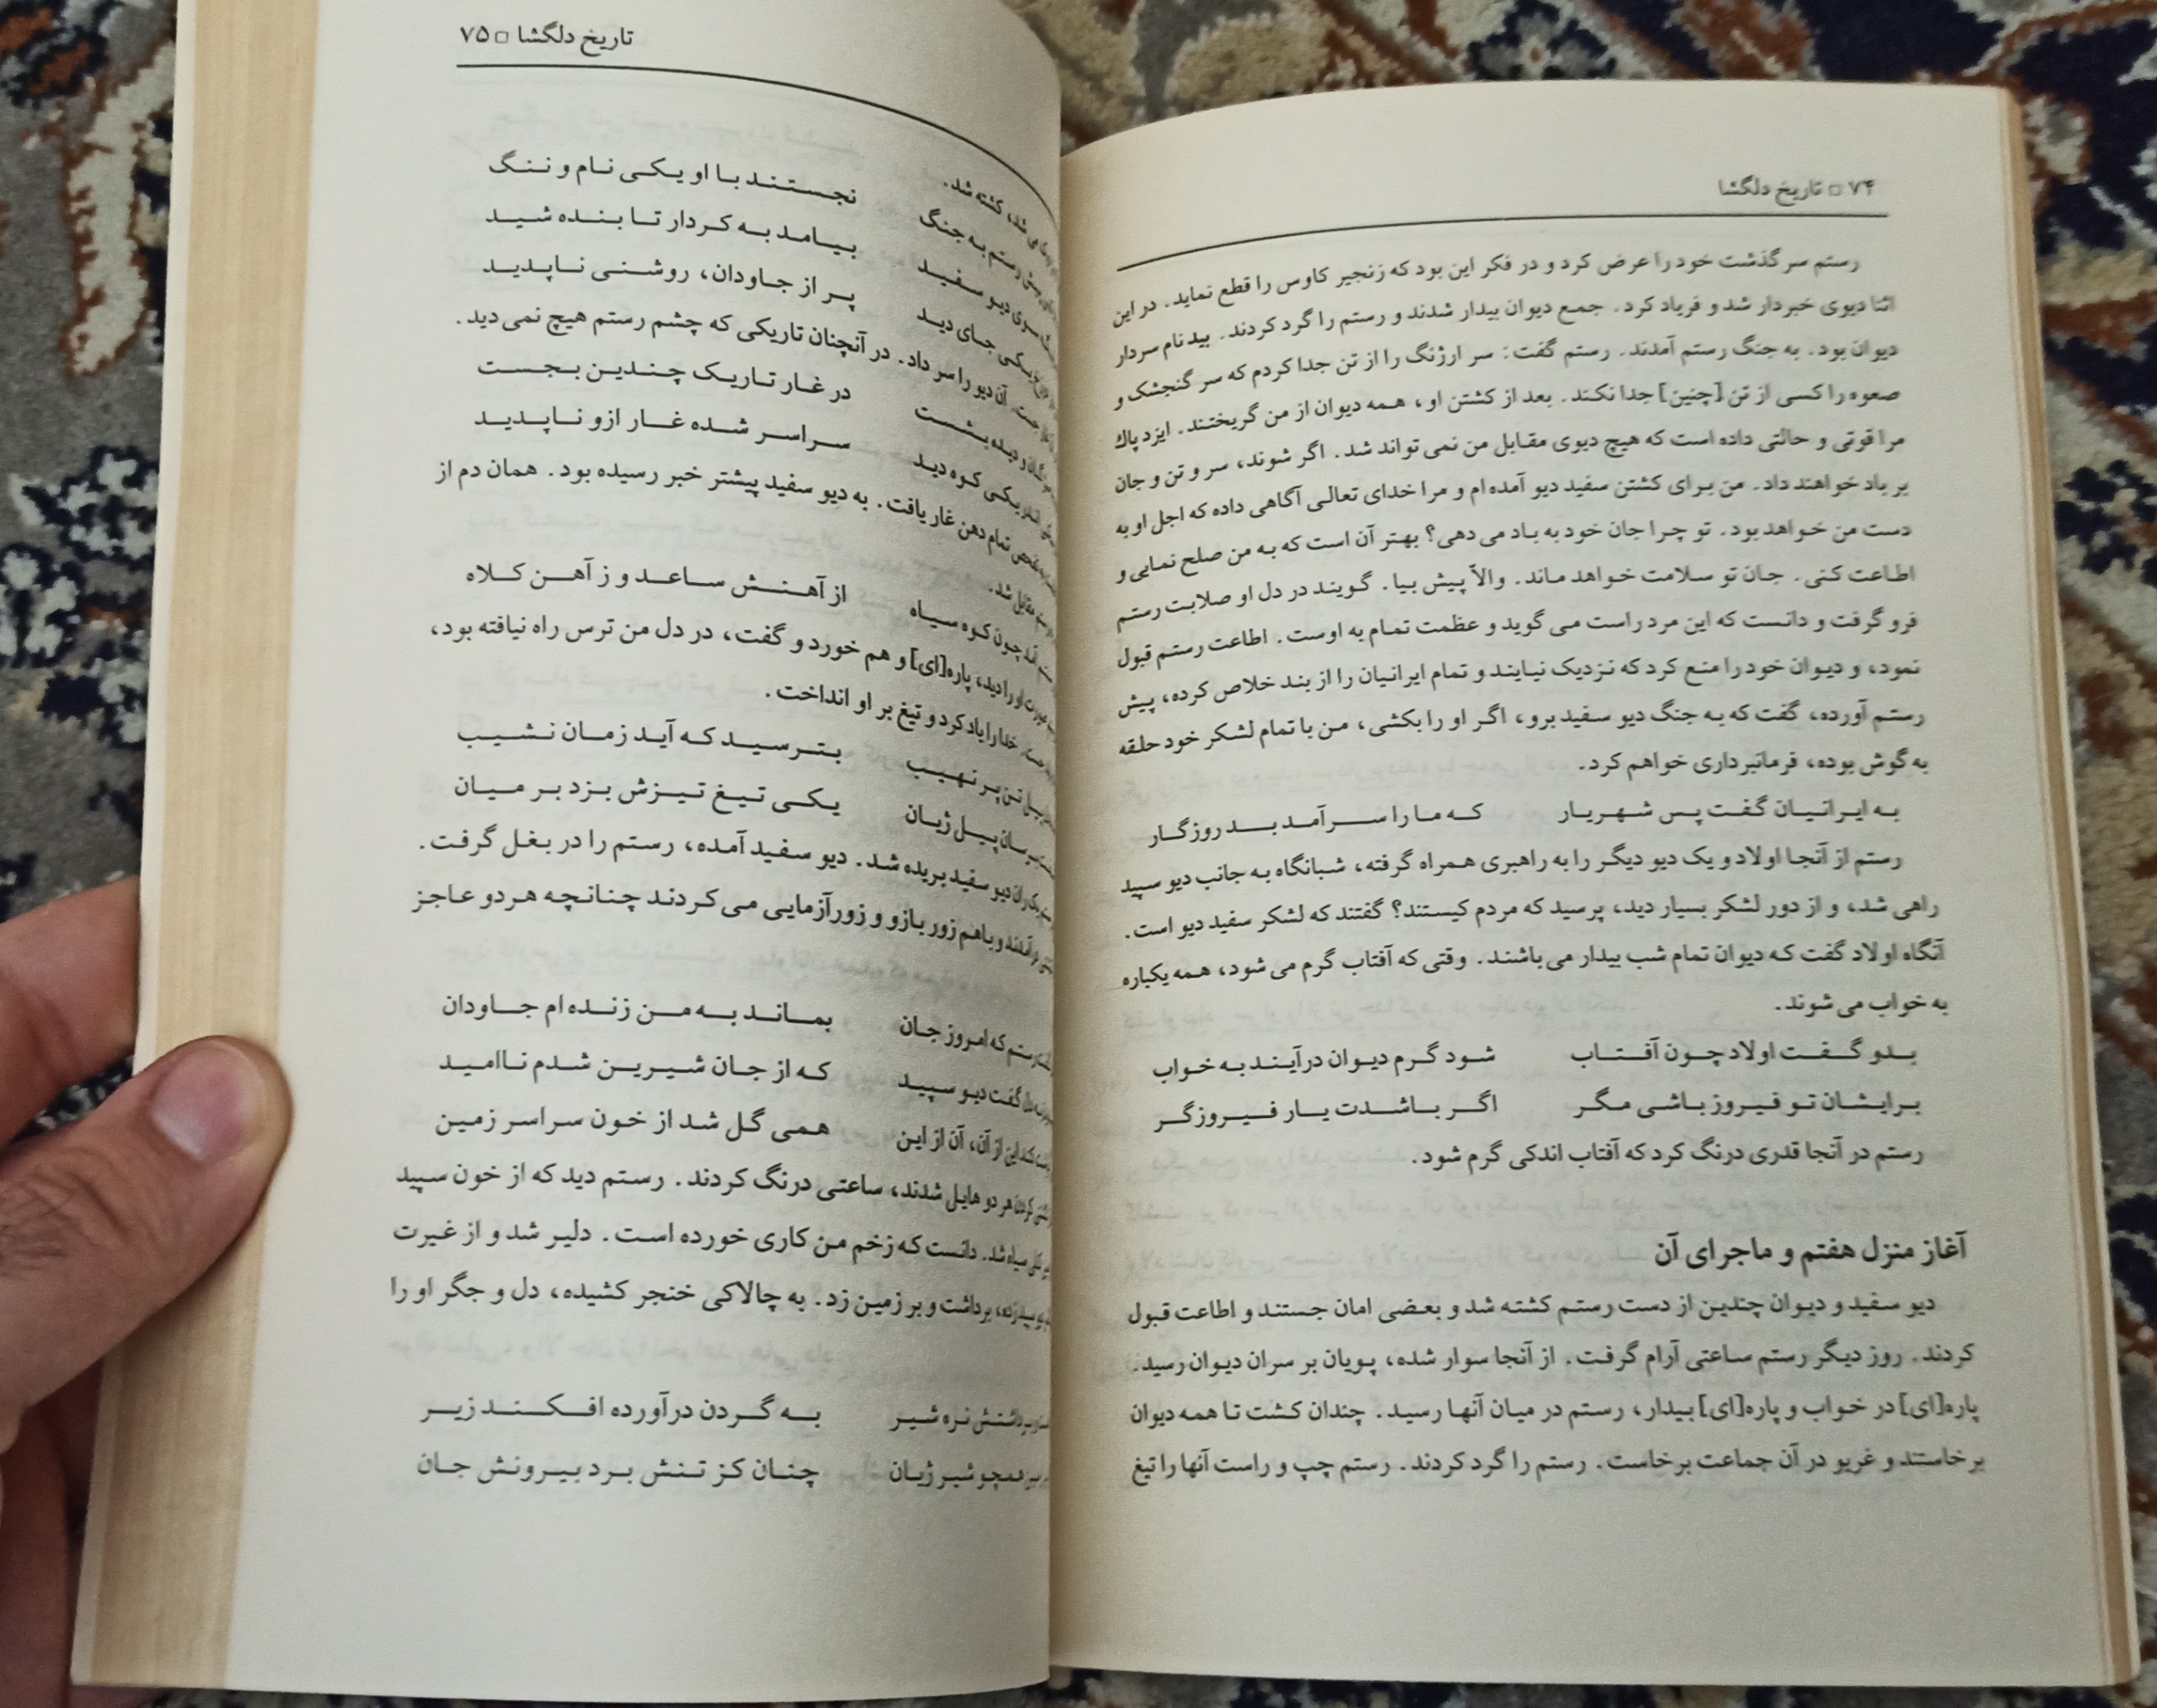 ۷۴ □ تاریخ دلگشا
رستم سرگذشت خود را عرض کرد و در فکر این بود که زنجیر کاوس را قطع نماید. در این
اثنا دیوی خبردار شد و فریاد کرد. جمع دیوان بیدار شدند و رستم را گرد کردند. بید نام سردار
دیوان بود. به جنگ رستم آمدند. رستم گفت: سر ارژنگ را از تن جدا کردم که سر گنجشک و
صعوه را کسی از تن [چنین] جدا نکند. بعد از کشتن او، همه دیوان از من گریختند. ایزد پاك
مرا قوتی و حالتی داده است که هیچ دیوی مقابل من نمی تواند شد. اگر شوند، سر و تن و جان
بر باد خواهند داد. من برای کشتن سفید دیو آمده ام و مرا خدای تعالی آگاهی داده که اجل او به
دست من خواهد بود. تو چرا جان خود به باد می دهی؟ بهتر آن است که به من صلح نمایی و
اطاعت کنی. جان تو سلامت خواهد ماند. والاّ پیش بیا. گویند در دل او صلابت رستم
فرو گرفت و دانست که این مرد راست می گوید و عظمت تمام به اوست. اطاعت رستم قبول
نمود، و دیوان خود را منع کرد که نزدیک نیایند و تمام ایرانیان را از بند خلاص کرده، پیش
رستم آورده، گفت که به جنگ دیو سفید برو، اگر او را بکشی، من با تمام لشکر خود حلقه
به گوش بوده، فرمانبرداری خواهم کرد.
به ایرانیان گفت پس شهریار که ما را سرآمد بد روزگار
رستم از آنجا اولاد و یک دیو دیگر را به راهبری همراه گرفته، شبانگاه به جانب دیو سپید
راهی شد، و از دور لشکر بسیار دید، پرسید که مردم کیستند؟ گفتند که لشکر سفید دیو است.
آنگاه اولاد گفت که دیوان تمام شب بیدار می باشند. وقتی که آفتاب گرم می شود، همه یکباره
به خواب می شوند.
بدو گفت اولاد چون آفتاب شود گرم دیوان درآیند به خواب
برایشان تو فیروز باشی مگر اگر باشدت یار فیروزگر
رستم در آنجا قدری درنگ کرد که آفتاب اندکی گرم شود.
آغاز منزل هفتم و ماجرای آن
دیو سفید و دیوان چندین از دست رستم کشته شد و بعضی امان جستند و اطاعت قبول
کردند. روز دیگر رستم ساعتی آرام گرفت. از آنجا سوار شده، پویان بر سران دیوان رسید.
پاره[ای] در خواب و پاره[ای] بیدار، رستم در میان آنها رسید. چندان کشت تا همه دیوان
برخاستند و غریو در آن جماعت برخاست. رستم را گرد کردند. رستم چپ و راست آنها را تیغ
تاریخ دلگشا □ ۷۵
می شد، کشته شد.
پیش رستم به جنگ نجستند با او یکی نام و ننگ
سوی دیو سفید بیامد به کردار تا بنده شید
جای دید پر از جاودان، روشنی ناپدید
آن دیو را سر داد. در آنچنان تاریکی که چشم رستم هیچ نمی دید.
و دیده بشست در غار تاریک چندین بجست
کوه دید سراسر شده غار ازو ناپدید
تمام دهن غار یافت. به دیو سفید پیشتر خبر رسیده بود. همان دم از
مقابل شد.
چون کوه سیاه از آهنش ساعد و ز آهن کلاه
او را دید، پاره[ای] و هم خورد و گفت، در دل من ترس راه نیافته بود،
خدا را یاد کرد و تیغ بر او انداخت.
تن پر نهیب بترسید که آید زمان نشیب
پیل ژیان یکی تیغ تیزش بزد بر میان
ران دیو سفید بریده شد. دیو سفید آمده، رستم را در بغل گرفت.
و باهم زور بازو و زورآزمایی می کردند چنانچه هردو عاجز
رستم که امروز جان بماند به من زنده ام جاودان
گفت دیو سپید که از جان شیرین شدم ناامید
این از آن، آن از این همی گل شد از خون سراسر زمین
هر دو هایل شدند، ساعتی درنگ کردند. رستم دید که از خون سپید
سیاه شد. دانست که زخم من کاری خورده است. دلیر شد و از غیرت
برداشت و بر زمین زد. به چالاکی خنجر کشیده، دل و جگر او را
برداشتش نره شیر به گردن درآورده افکند زیر
همچو شیر ژیان چنان کز تنش برد بیرونش جان